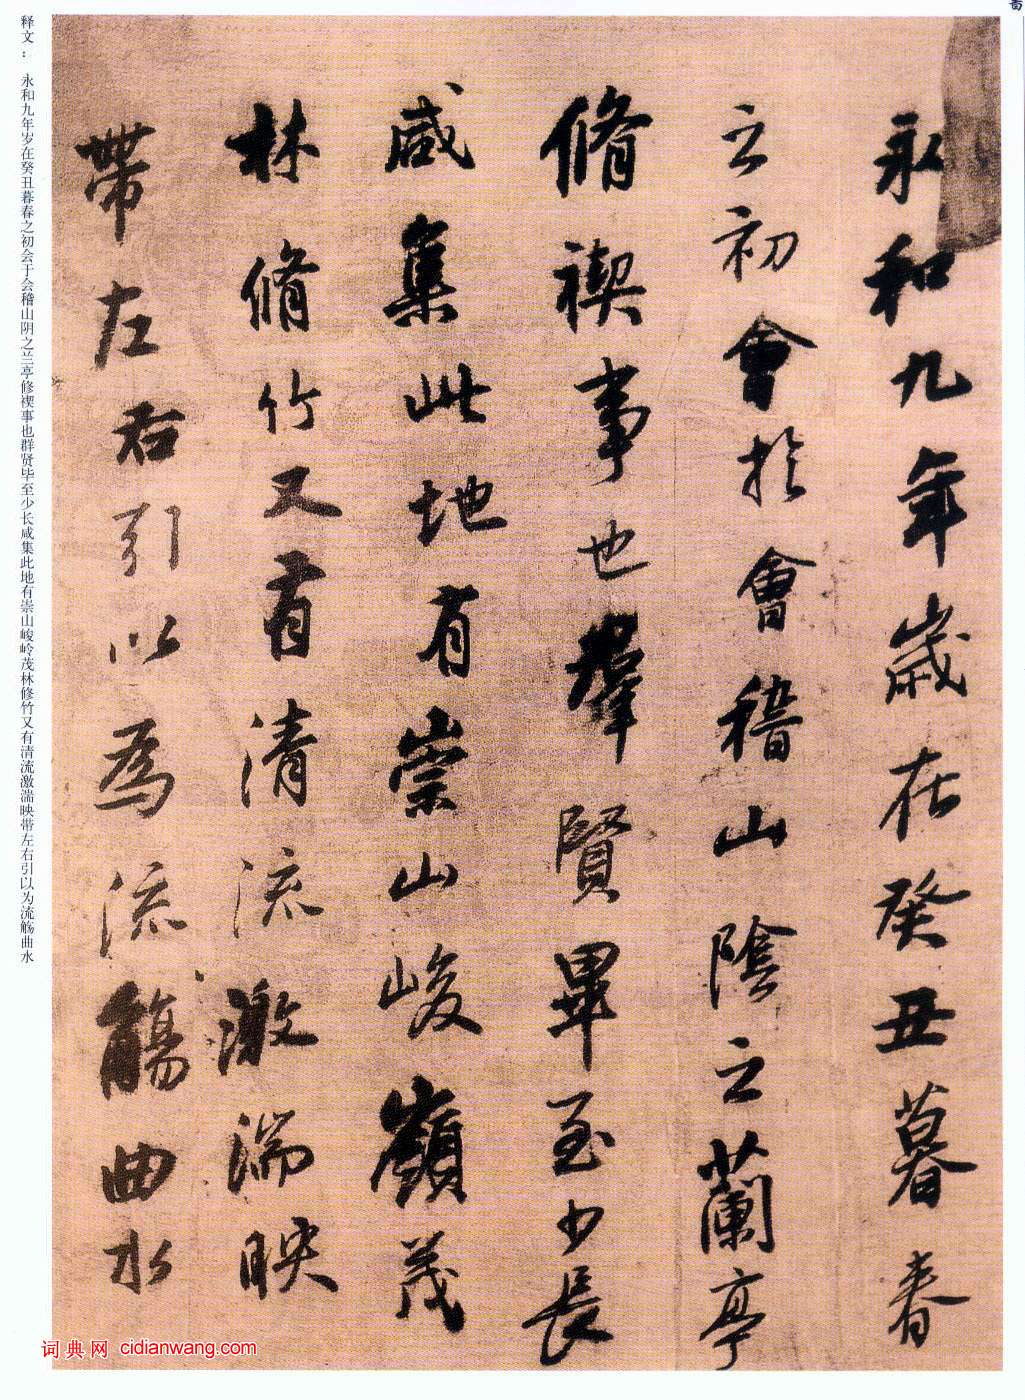 永和九年歲在癸丑暮春
之初會於會稽山陰之蘭亭
脩禊事也羣賢畢至少長
咸集此地有崇山峻嶺茂
林脩竹又有清流激湍映
帶左右引以為流觴曲水
释文：永和九年岁在癸丑暮春之初会于会稽山阴之兰亭修禊事也群贤毕至少长咸集此地有崇山峻岭茂林修竹又有清流激湍映带左右引以为流觞曲水
词典网 cidianwang.com